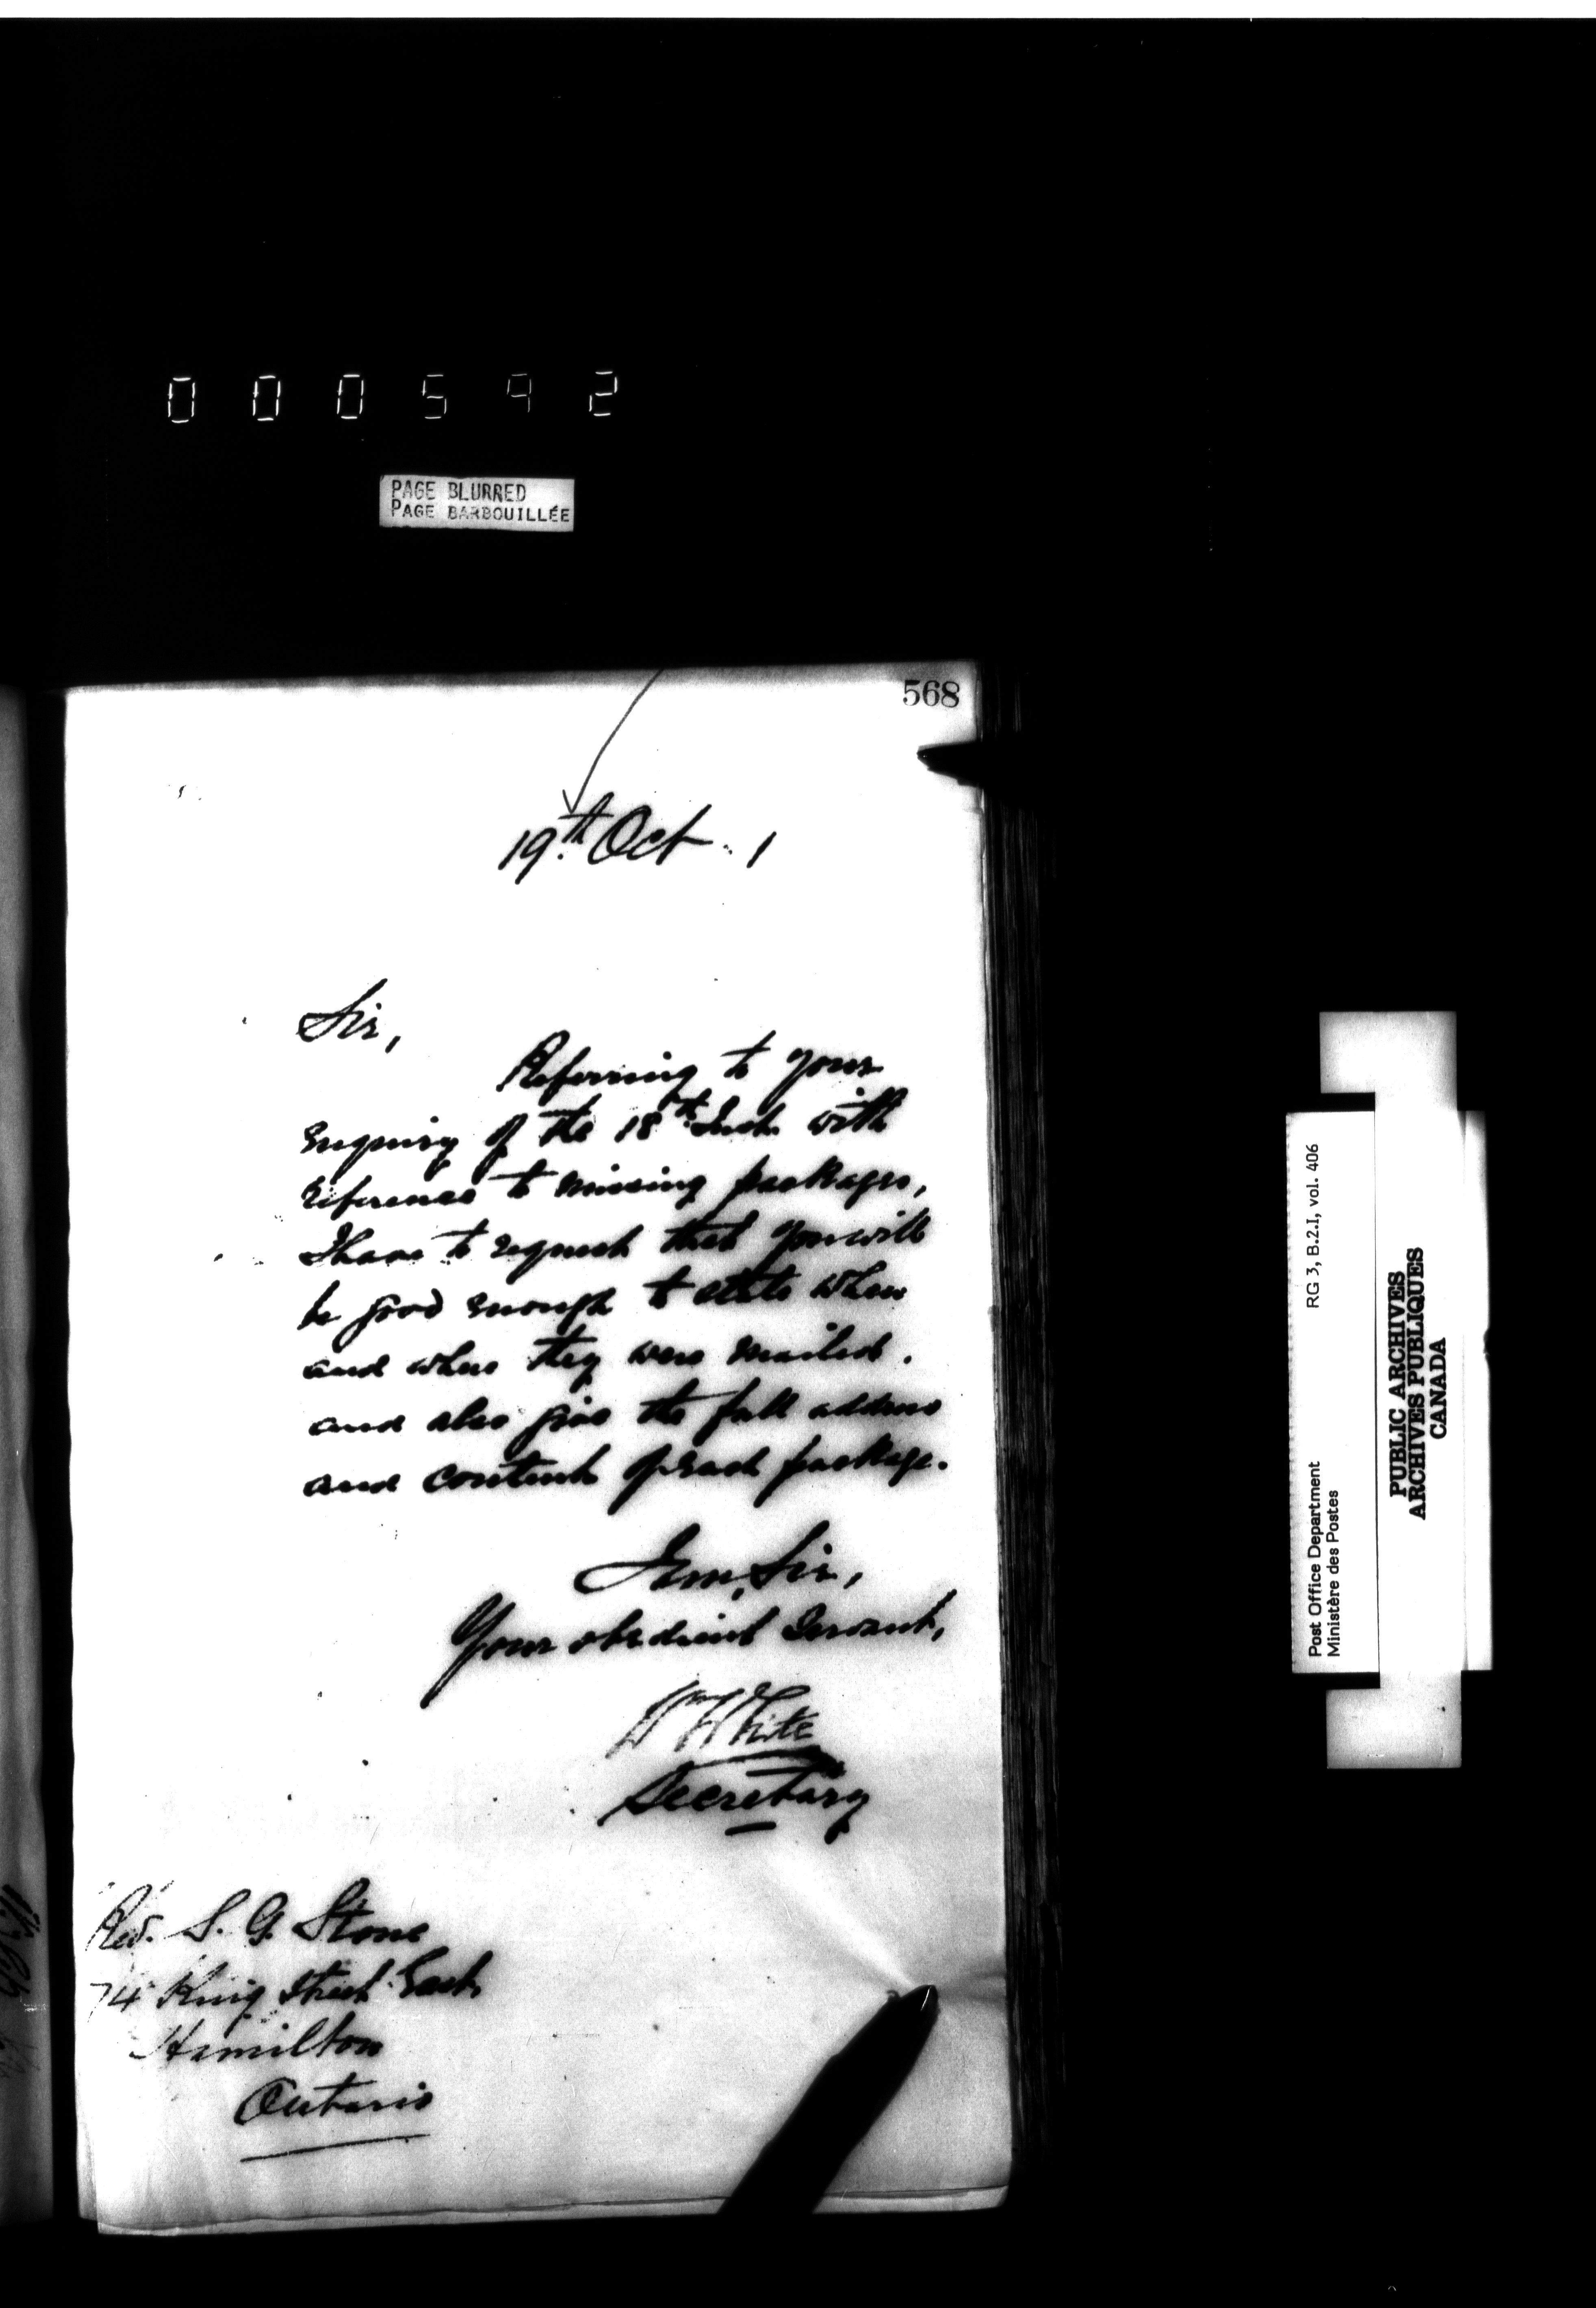 000592
PAGE BLURRED
PAGE BARBOUILLÉE
568
19th Oct. 1
Sir,
Referring to your
enquiry of the 18th Inst. with
reference to missing packages,
I have to request that you will
be good enough to state when
and where they were mailed.
and also give the full address
and contents of each package.
I am, Sir,
Your obedient Servant,
Wm White
Secretary
Rev. S. G. Stone
74 King Street East
Hamilton
Ontario
Post Office Department RG 3, B.2.I, vol. 406
Ministère des Postes
PUBLIC ARCHIVES
ARCHIVES PUBLIQUES
CANADA